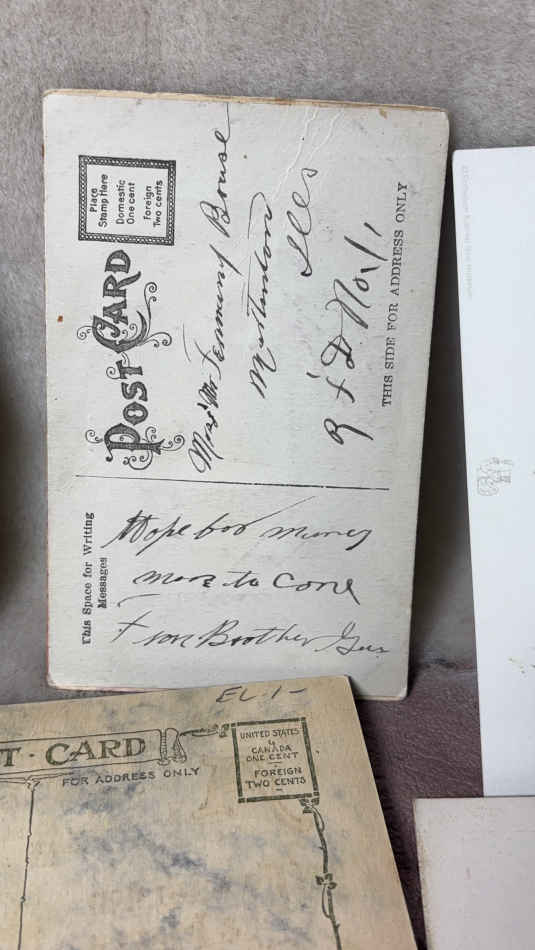 Place
Stamp Here
Domestic
One cent
Foreign
Two cents
POST CARD
This Space for Writing
Messages
Hope for
more to come
From Brother Gus
Bouse
Ills
R F D No 1
THIS SIDE FOR ADDRESS ONLY
EL-1-
T-CARD
FOR ADDRESS ONLY
UNITED STATES
&
CANADA
ONE CENT
FOREIGN
TWO CENTS